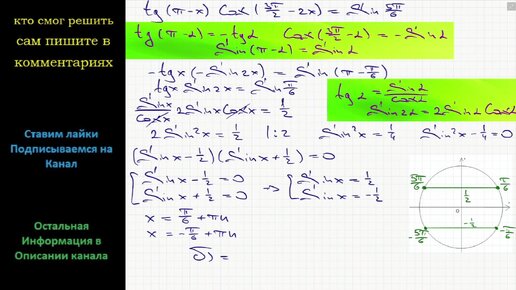 кто смог решить
сам пишите в
комментариях
Ставим лайки
Подписываемся на
Канал
Остальная
Информация в
Описании канала
tg(π-x) Cos(3π/2 - 2x) = Sin 5π/6
tg(π-α) = -tgα Cos(3π/2 - α) = -Sinα
Sin(π-α) = Sinα
-tgx(-Sin2x) = Sin(π - π/6)
tgx Sin2x = Sin π/6
tgα = Sinα/Cosα
Sin2α = 2Sinα Cosα
Sinx/Cosx 2Sinx Cosx = 1/2
2Sin²x = 1/2 | :2 Sin²x = 1/4 Sin²x - 1/4 = 0
(Sinx - 1/2)(Sinx + 1/2) = 0
Sinx - 1/2 = 0 → Sinx = 1/2
Sinx + 1/2 = 0 Sinx = -1/2
x = π/6 + πn
x = -π/6 + πn
δ) =
5π/6 π/6
1/2
0
-1/2
-5π/6 -π/6